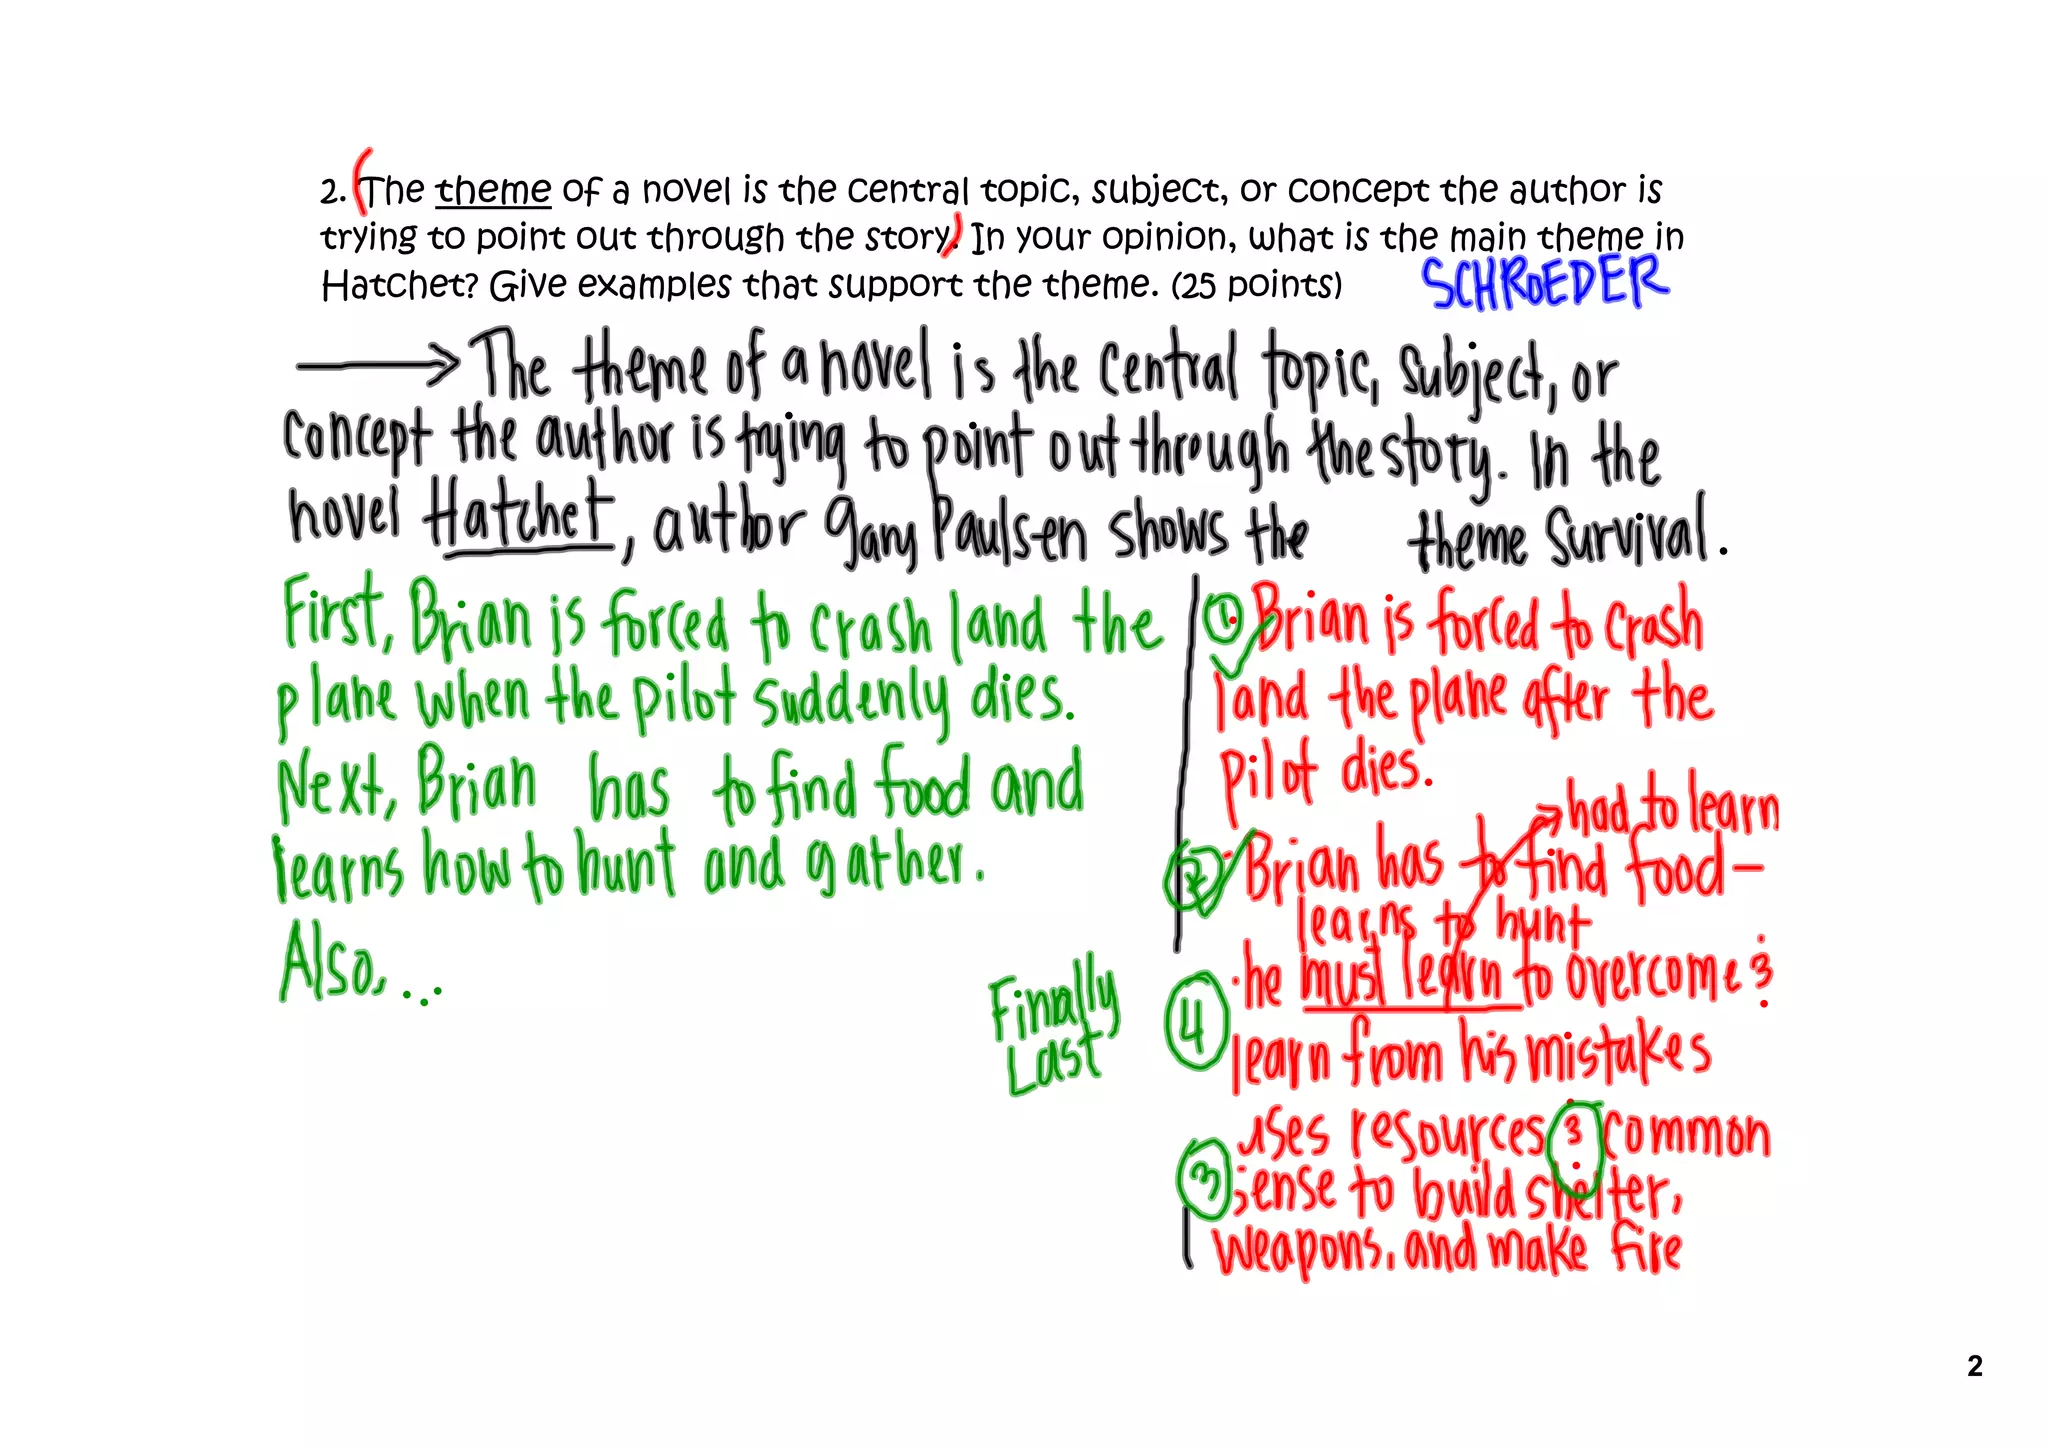 2. (The theme of a novel is the central topic, subject, or concept the author is
trying to point out through the story.) In your opinion, what is the main theme in
Hatchet? Give examples that support the theme. (25 points)
SCHROEDER
→ The theme of a novel is the central topic, subject, or
concept the author is trying to point out through the story. In the
novel Hatchet, author Gary Paulsen shows the theme Survival.
First, Brian is forced to crash land the
plane when the pilot suddenly dies.
Next, Brian has to find food and
learns how to hunt and gather.
Also, ...
Finally
Last
1 · Brian is forced to crash
land the plane after the
pilot dies.
→ had to learn
2 · Brian has to find food -
learns to hunt
4 · he must learn to overcome &
learn from his mistakes
uses resources & common
3 sense to build shelter,
weapons, and make fire
2